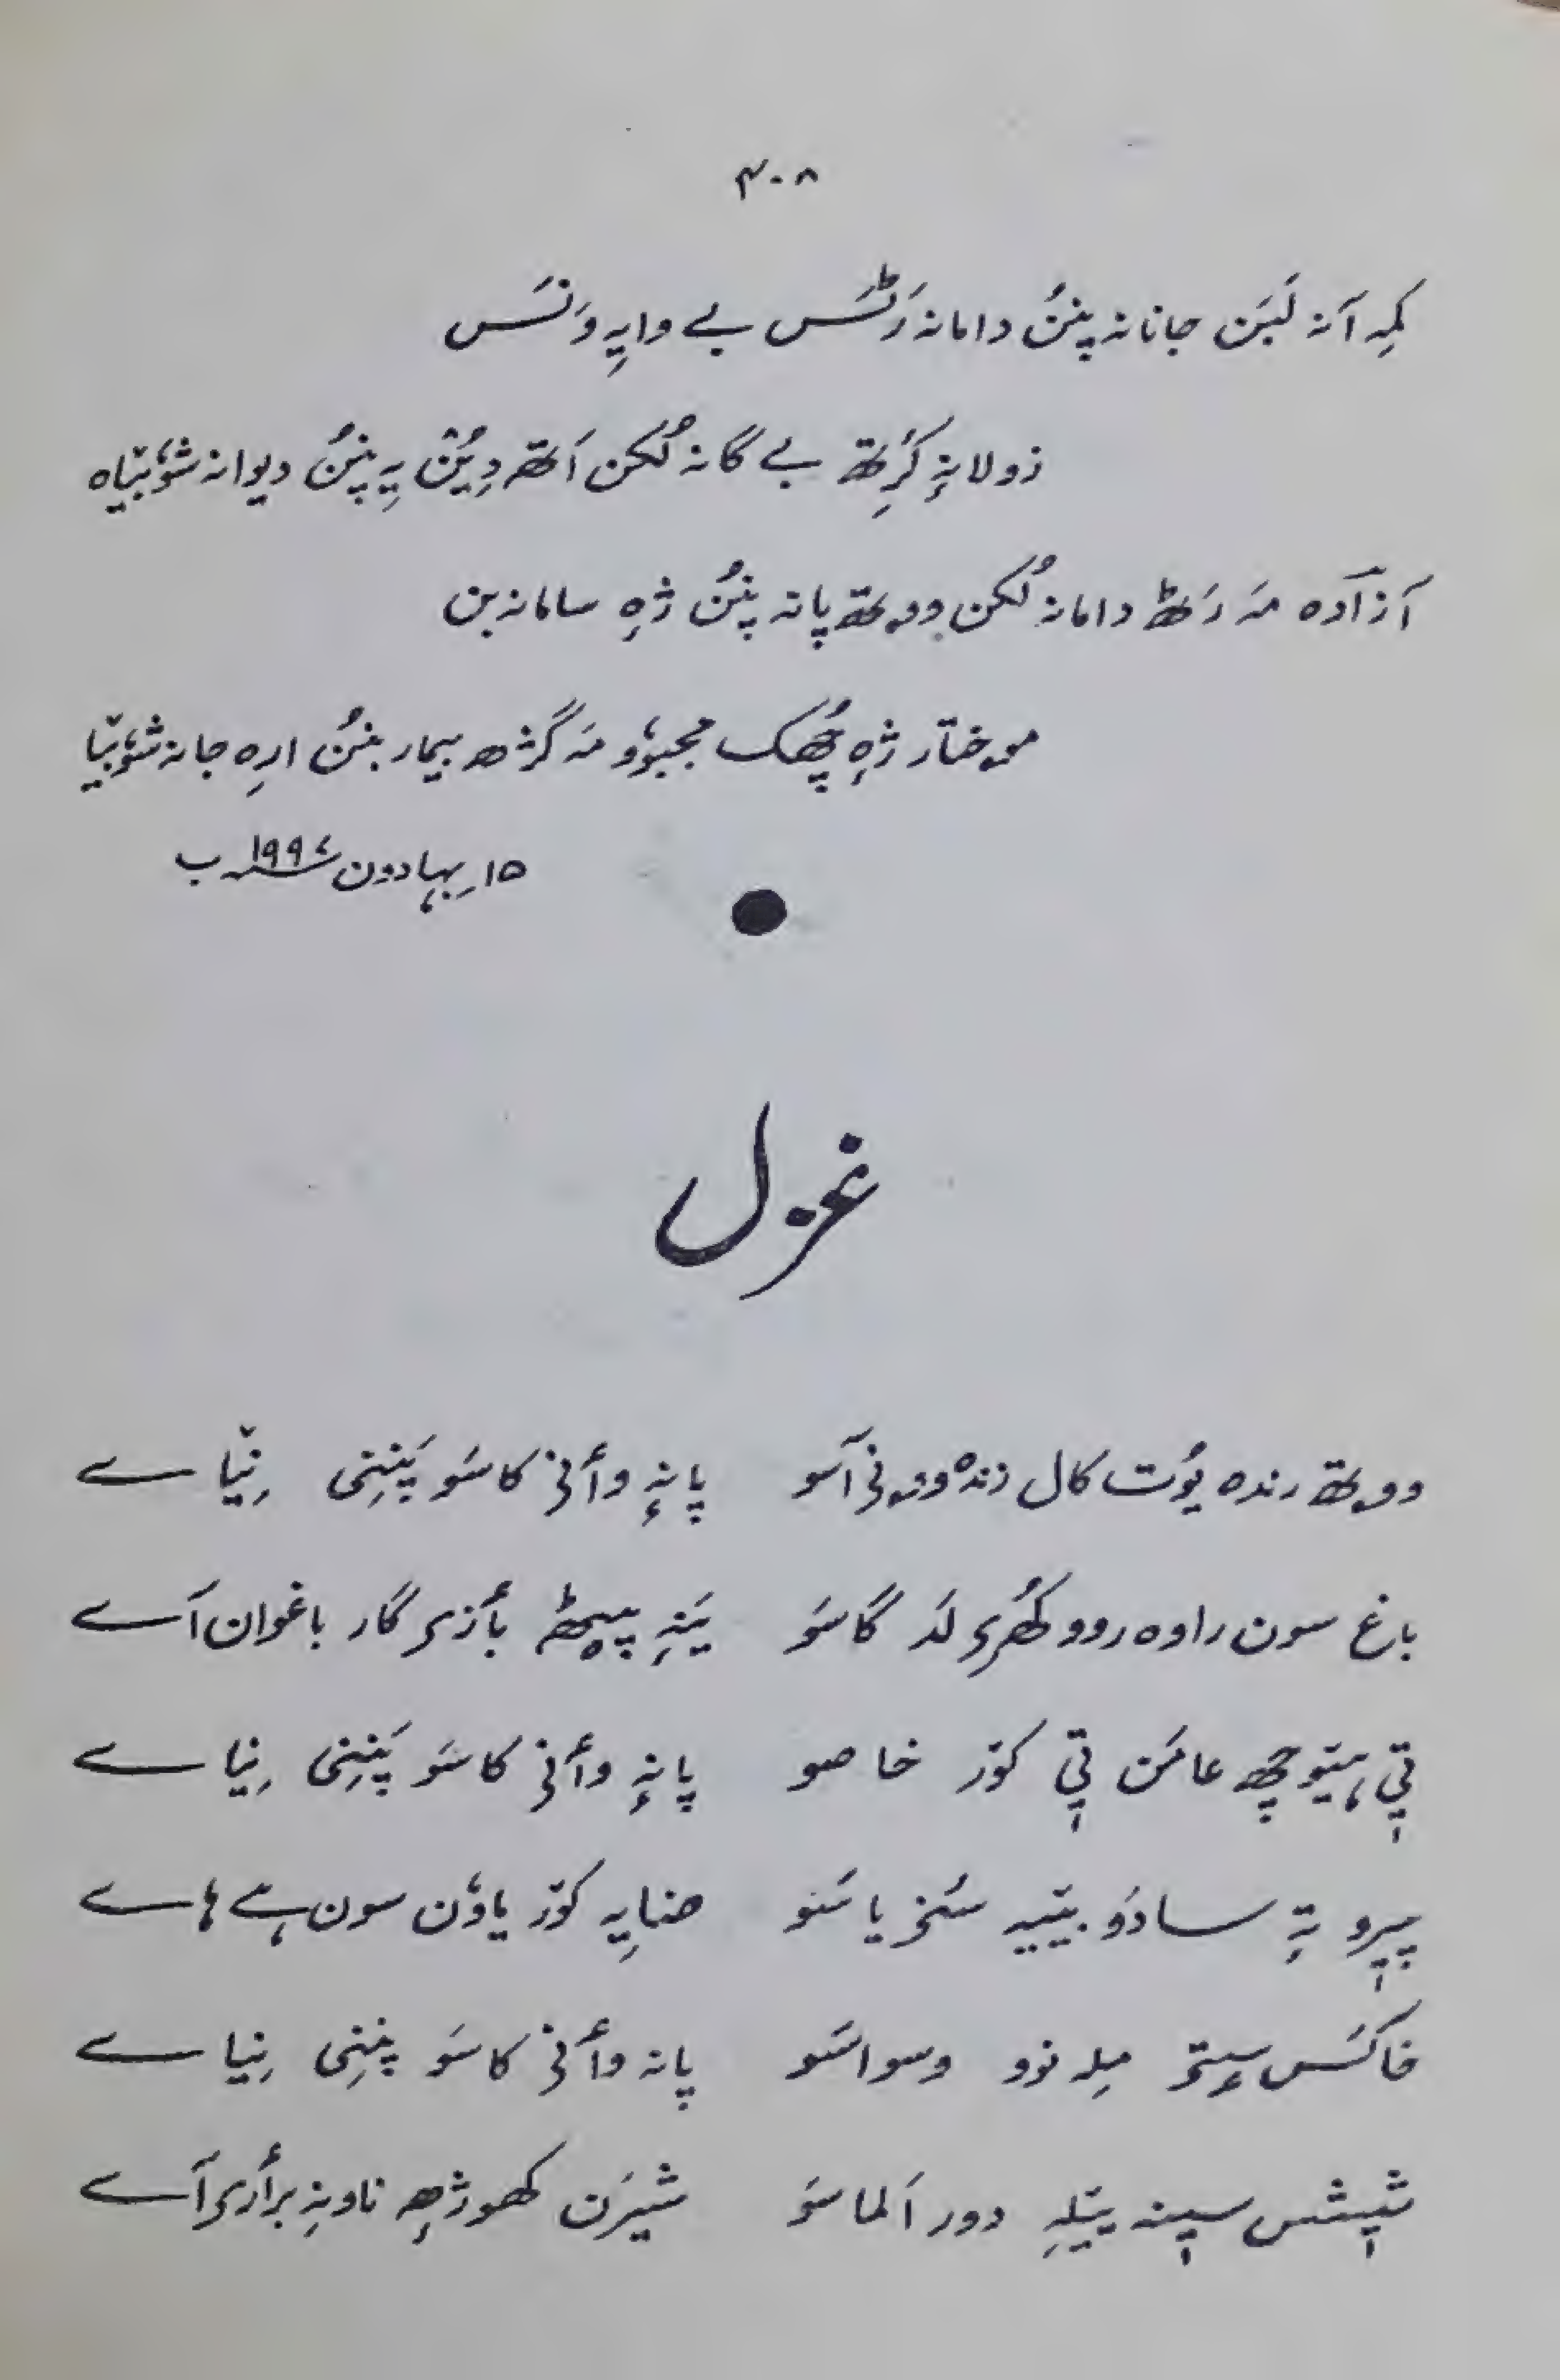 ۴۰۸
کمہِ آنہ لَبَن جانانہ پنُن دامانہ رَٹَس بے وایہِ وَنَس
زولانہٕ کٔرِتھ بے گانہ لُکن اَتھ دِیُن یہِ پنُن دیوانہ شوٗبیٚاہ
آزادہ مہَ رَٹھ دامانہ لُکن ووتھ پانہ پنُن ژہٕ سامانہ بن
موختار ژہٕ چھُک محبوٗبو مہَ گژھ بیمار بنُن ارہِ جانہ شوٗبیٚا
۱۵ بہادون ۱۹۹۴ ب
غزل
ووتھ رندہ یوٗت کال زندٕ وونی آسو پانہٕ وأنی کاسَو پَننِی نِیٚاے
باغ سون راوہ روو کھُری لَد گاسَو یَنہِ پیٹھہٕ بأزی گار باغوان آے
تِمۍ ہیٚتوچھ عامَن تِمۍ کوٚر خاصو پانہٕ وأنی کاسَو پَننِی نِیاے
پیرو تہِ سادَو بیٚیہ سَنیاسَو ضایہِ کوٚر یاوُن سون ہے ہاے
خاکَس سیٖتۍ میلہ نوو وسواسَو پانہ وأنی کاسَو پننِی نِیاے
شیشس سینہ یتلہِ دور اَلماسَو شیرَن کھوژھہِ ناونہِ برأری آے